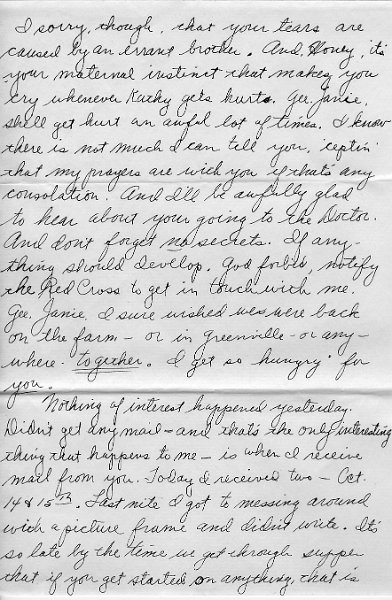 I sorry, though, that your tears are
caused by an errant brother. And, Honey, it's
your maternal instinct that makes you
cry whenever Kathy gets hurt. Gee, Janie,
she'll get hurt an awful lot of times. I know
there is not much I can tell you, 'ceptin'
that my prayers are with you if that's any
consolation. And I'll be awfully glad
to hear about your going to the Doctor.
And don't forget no secrets. If any-
thing should develop, God forbid, notify
the Red Cross to get in touch with me.
Gee, Janie, I sure wished we were back
on the farm - or in Greenville - or any-
where together. I get so hungry for
you.
Nothing of interest happened yesterday.
Didn't get any mail - and that's the only interesting
thing that happens to me - is when I receive
mail from you. Today I received two - Oct.
14 & 15th. Last nite I got to messing around
with a picture frame and didn't write. It's
so late by the time we get through supper
that if you get started on anything, that is